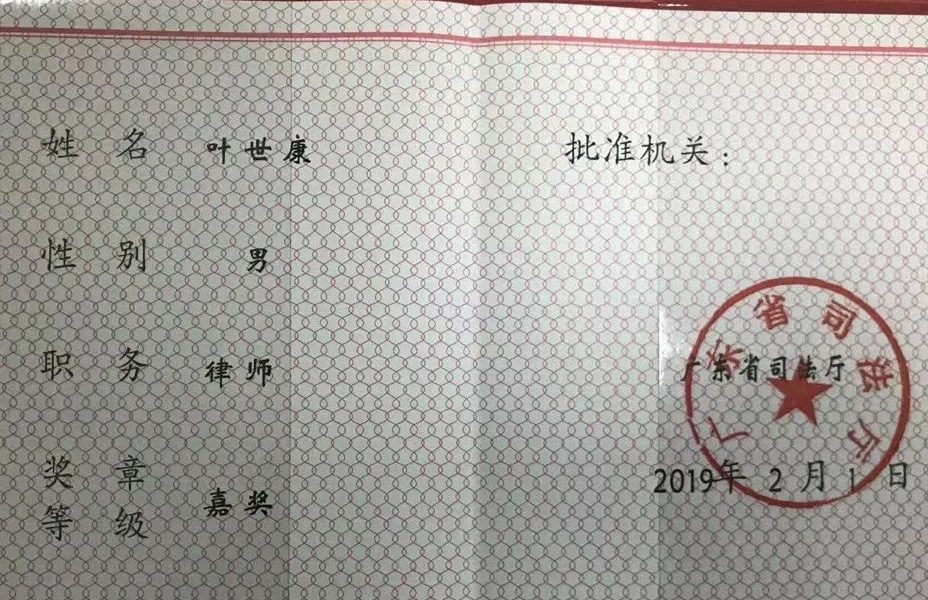 姓名 叶世康
性别 男
职务 律师
奖章等级 嘉奖
批准机关：
广东省司法厅
广东省司法厅
2019年2月1日